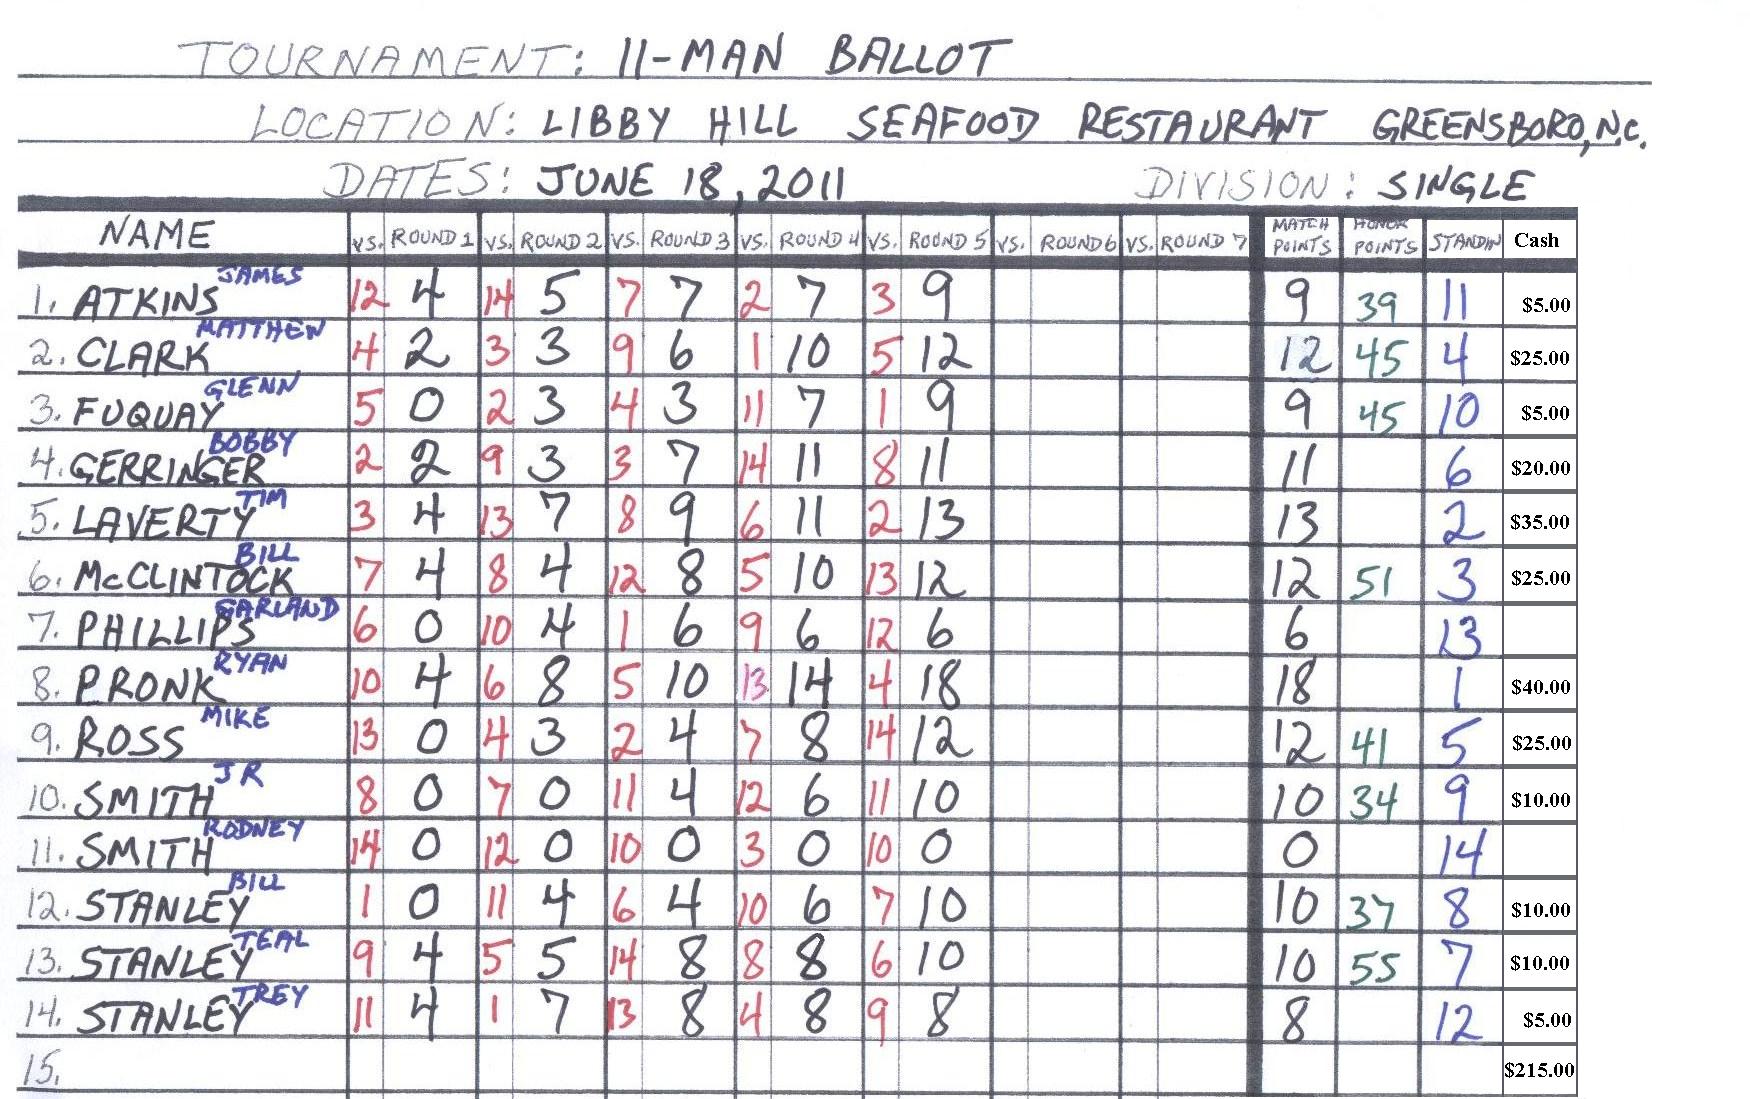 TOURNAMENT: 11-MAN BALLOT
LOCATION: LIBBY HILL SEAFOOD RESTAURANT GREENSBORO, N.C.
DATES: JUNE 18, 2011 DIVISION: SINGLE
NAME VS. ROUND 1 VS. ROUND 2 VS. ROUND 3 VS. ROUND 4 VS. ROUND 5 VS. ROUND 6 VS. ROUND 7 MATCH POINTS HONOR POINTS STANDIN Cash
1. ATKINS JAMES 12 4 14 5 7 7 2 7 3 9 9 39 11 $5.00
2. CLARK MATTHEW 4 2 3 3 9 6 1 10 5 12 12 45 4 $25.00
3. FUQUAY GLENN 5 0 2 3 4 3 11 7 1 9 9 45 10 $5.00
4. GERRINGER BOBBY 2 2 9 3 3 7 14 11 8 11 11 6 $20.00
5. LAVERTY TIM 3 4 13 7 8 9 6 11 2 13 13 2 $35.00
6. McCLINTOCK BILL 7 4 8 4 12 8 5 10 13 12 12 51 3 $25.00
7. PHILLIPS GARLAND 6 0 10 4 1 6 9 6 12 6 6 13
8. PRONK RYAN 10 4 6 8 5 10 13 14 4 18 18 1 $40.00
9. ROSS MIKE 13 0 4 3 2 4 7 8 14 12 12 41 5 $25.00
10. SMITH JR 8 0 7 0 11 4 12 6 11 10 10 34 9 $10.00
11. SMITH RODNEY 14 0 12 0 10 0 3 0 10 0 0 14
12. STANLEY BILL 1 0 11 4 6 4 10 6 7 10 10 37 8 $10.00
13. STANLEY TEAL 9 4 5 5 14 8 8 8 6 10 10 55 7 $10.00
14. STANLEY TREY 11 4 1 7 13 8 4 8 9 8 8 12 $5.00
15. $215.00